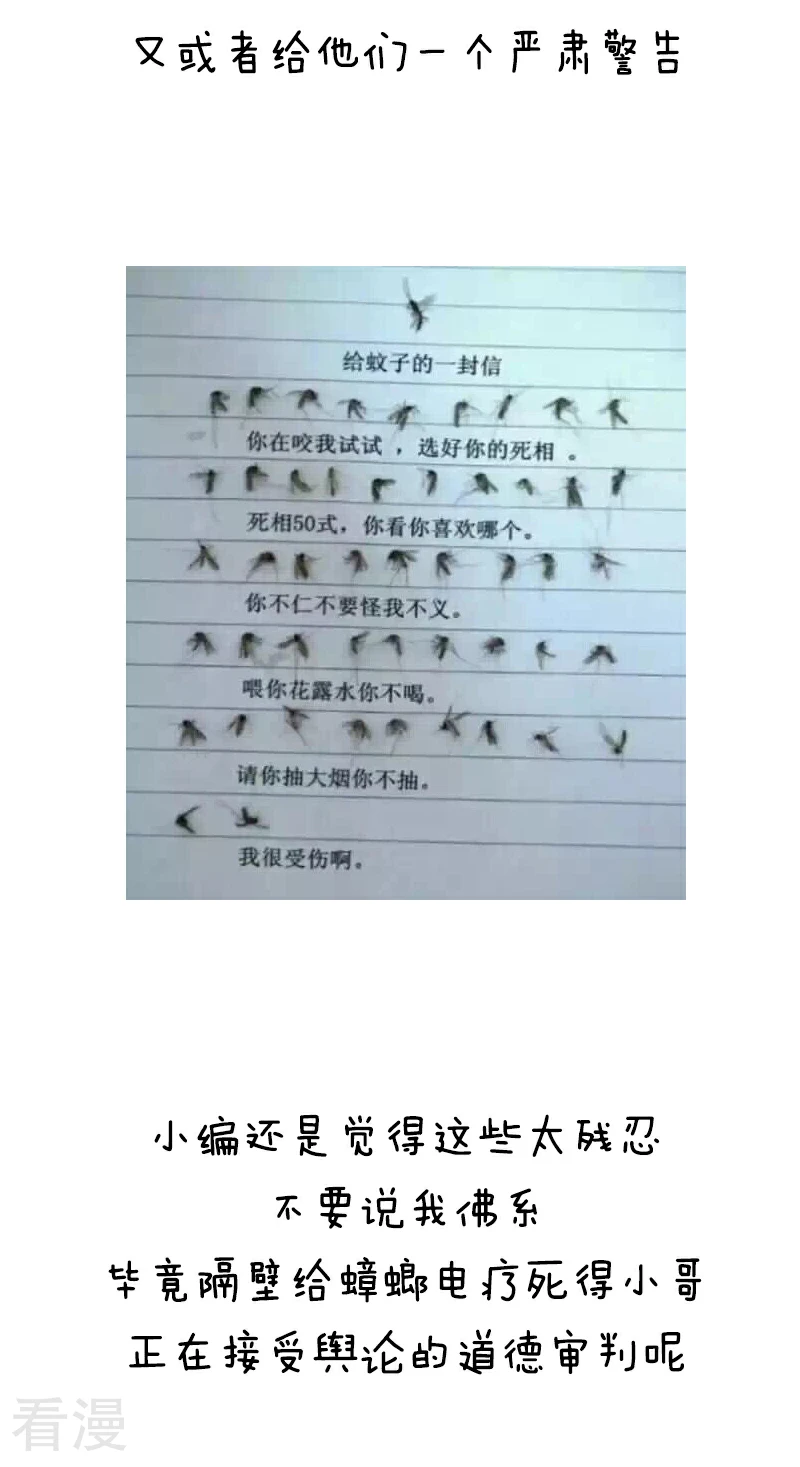 又或者给他们一个严肃警告
给蚊子的一封信
你在咬我试试，选好你的死相。
死相50式，你看你喜欢哪个。
你不仁不要怪我不义。
喂你花露水你不喝。
请你抽大烟你不抽。
我很受伤啊。
小编还是觉得这些太残忍
不要说我佛系
毕竟隔壁给蟑螂电疗死得小哥
正在接受舆论的道德审判呢
看漫